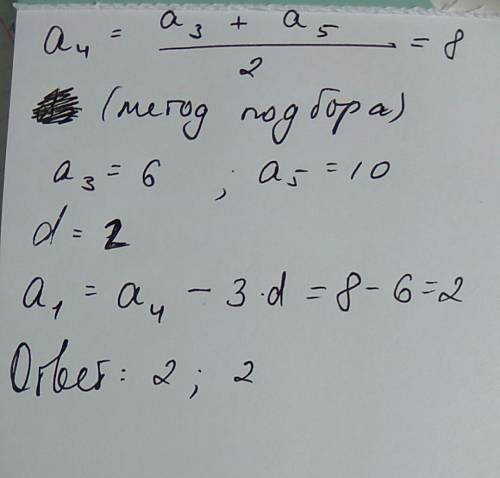 a₄ = (a₃ + a₅) / 2 = 8
(метод подбора)
a₃ = 6 ; a₅ = 10
d = 2
a₁ = a₄ - 3·d = 8 - 6 = 2
Ответ: 2 ; 2